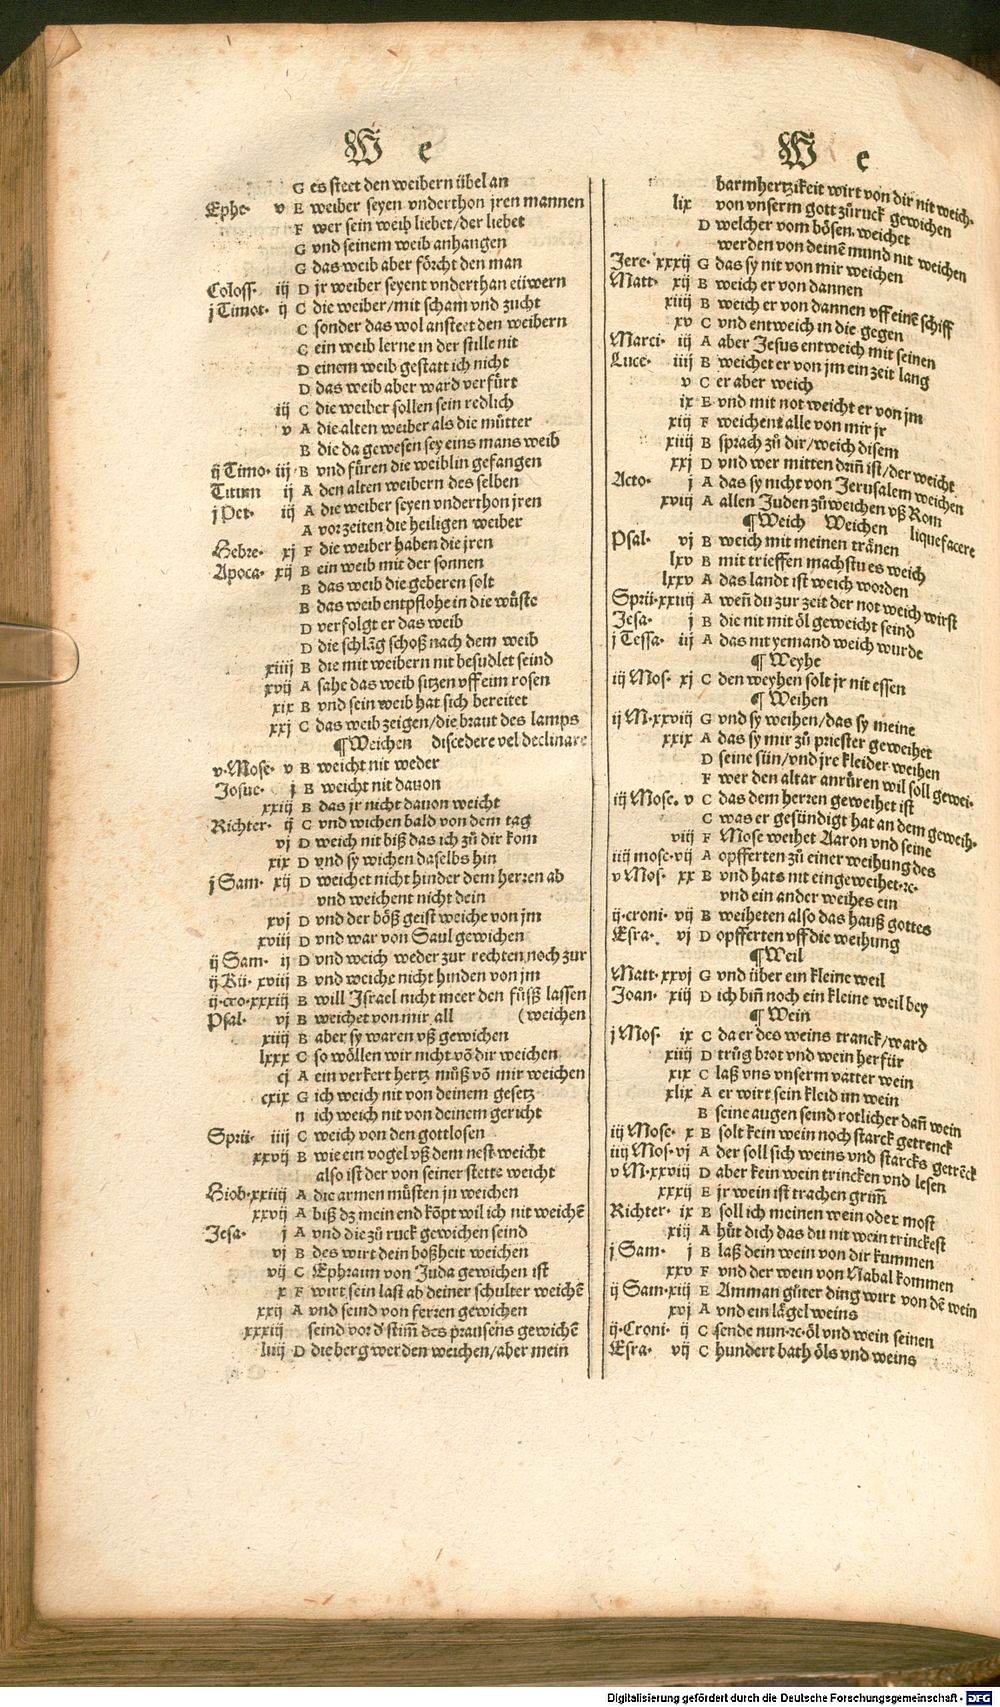 W e
G es steet den weibern übel an
Ephe· v E weiber seyen vnderthon jren mannen
F wer sein weib liebet/der liebet
G vnd seinem weib anhangen
G das weib aber förcht den man
Coloss· iij D jr weiber seyent vnderthan eüwern
j Timot· ij C die weiber/mit scham vnd zucht
C sonder das wol ansteet den weibern
C ein weib lerne in der stille nit
D einem weib gestatt ich nicht
D das weib aber ward verfürt
iij C die weiber sollen sein redlich
v A die alten weiber als die mütter
B die da gewesen sey eins mans weib
ij Timo· iij B vnd füren die weiblin gefangen
Titum ij A den alten weibern des selben
j Pet· iij A die weiber seyen vnderthon jren
A vorzeiten die heiligen weiber
Hebre· xj F die weiber haben die jren
Apoca· xij B ein weib mit der sonnen
B das weib die geberen solt
B das weib entpflohe in die wüste
D verfolgt er das weib
D die schlāg schoß nach dem weib
xiiij B die mit weibern nit besudlet seind
xvij A sahe das weib sitzen vff eim rosen
xix B vnd sein weib hat sich bereitet
xxj C das weib zeigen/die braut des lamps
¶Weichen discedere vel declinare
v·Mose· v B weicht nit weder
Josue· j B weicht nit dauon
xxiij B das jr nicht dauon weicht
Richter· ij C vnd wichen bald von dem tag
vj D weich nit biß das ich zů dir kom
xix D vnd sy wichen daselbs hin
j Sam· xij D weichet nicht hinder dem herren ab
vnd weichent nicht dein
xvj D vnd der böß geist weiche von jm
xviij D vnd war von Saul gewichen
ij Sam· ij D vnd weich weder zur rechten noch zur
ij Kü· xviij B vnd weiche nicht hinden von jm
ij·cro·xxxiij B will Israel nicht meer den füß lassen
Psal· vj B weichet von mir all (weichen
xiiij B aber sy waren vß gewichen
lxxx C so wöllen wir nicht vō dir weichen
cj A ein verkert hertz můß vō mir weichen
cxix G ich weich nit von deinem gesetz
n ich weich nit von deinem gericht
Sprü· iiij C weich von den gottlosen
xxvij B wie ein vogel vß dem nest weicht
also ist der von seiner stette weicht
Hiob·xxiiij A die armen můsten jn weichen
xxvij A biß dz mein end kōpt wil ich nit weichē
Jesa· j A vnd die zů ruck gewichen seind
vj B des wirt dein boßheit weichen
vij C Ephraim von Juda gewichen ist
x F wirt sein last ab deiner schulter weichē
xxij A vnd seind von ferren gewichen
xxxiij seind vor d' stim̄ des prausens gewichē
liiij D die berg werden weichen/aber mein
W e
barmhertzikeit wirt von dir nit weich·
lix von vnserm gott zůruck gewichen
D welcher vom bösen weichet
werden von deinē mund nit weichen
Jere· xxxij G das sy nit von mir weichen
Matt· xij B weich er von dannen
xiiij B weich er von dannen vff einē schiff
xv C vnd entweich in die gegen
Marci· iij A aber Jesus entweich mit seinen
Luce· iiij B weichet er von jm ein zeit lang
v C er aber weich
ix E vnd mit not weicht er von jm
xiij F weichent alle von mir jr
xiiij B sprach zů dir/weich disem
xxj D vnd wer mitten drin̄ ist/der weicht
Acto· j A das sy nicht von Jerusalem weichen
xviij A allen Juden zů weichen vß Rom
¶Weich Weichen liquefacere
Psal· vj B weich mit meinen tränen
lxv B mit trieffen machstu es weich
lxxv A das landt ist weich worden
Sprü·xxiiij A wen̄ du zur zeit der not weich wirst
Jesa· j B die nit mit öl geweicht seind
j Tessa· iij A das nit yemand weich wurde
¶ Weyhe
iij Mos· xj C den weyhen solt jr nit essen
¶ Weihen
ij M·xxviij G vnd sy weihen/das sy meine
xxix A das sy mir zů priester geweihet
D seine sün/vnd jre kleider weihen
F wer den altar anrüren wil soll gewei·
iij Mose· v C das dem herren geweihet ist
C was er gesündigt hat an dem geweih·
viij F Mose weihet Aaron vnd seine
iiij mose·vij A opfferten zů einer weihung des
v Mos· xx B vnd hats nit eingeweihet·rc·
vnd ein ander weihes ein
ij·croni· vij B weiheten also das hauß gottes
Esra· vj D opfferten vff die weihung
¶Weil
Matt·xxvj G vnd über ein kleine weil
Joan· xiij D ich bin̄ noch ein kleine weil bey
¶ Wein
j Mos· ix C da er des weins tranck/ward
xiiij D trůg brot vnd wein herfür
xix C laß vns vnserm vatter wein
xlix A er wirt sein kleid im wein
B seine augen seind rotlicher dan̄ wein
iij Mose· x B solt kein wein noch starck getrenck
iiij Mos·vj A der soll sich weins vnd starcks getrēck
v M·xxviij D aber kein wein trincken vnd lesen
xxxij E jr wein ist trachen grim̄
Richter· ix B soll ich meinen wein oder most
xiij A hůt dich das du nit wein trinckest
j Sam· j B laß dein wein von dir kummen
xxv F vnd der wein von Nabal kommen
ij Sam·xiij E Amman gůter ding wirt von dē wein
xvj A vnd ein lägel weins
ij·Croni· ij C sende nun·rc·öl vnd wein seinen
Esra· vij C hundert bath öls vnd weins
Digitalisierung gefördert durch die Deutsche Forschungsgemeinschaft - DFG